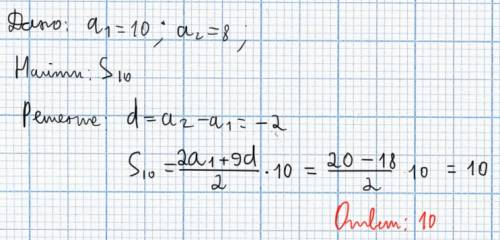 Дано: a₁=10; a₂=8;
Найти: S₁₀
Решение: d=a₂-a₁=-2
S₁₀=(2a₁+9d)/2·10=(20-18)/2 10=10
Ответ: 10